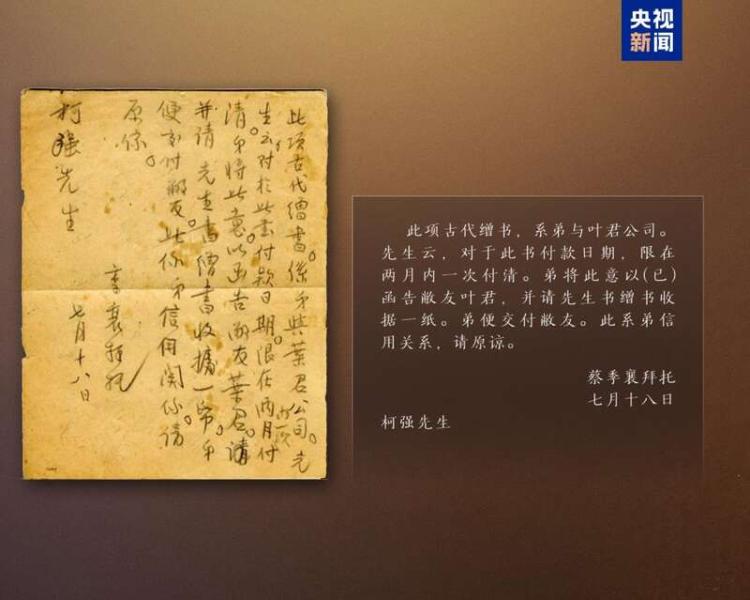 央视
新闻
此項古代繒書。係弟與葉君公司。先
生云对於此書付款日期限在两月内一次付
清。弟将此意以函告敝友葉君。請
并請 先生書繒書收據一帋。弟
便交付敝友此係弟信用関係。請
原諒。
季襄拜托
七月十八日
柯强先生
此项古代缯书，系弟与叶君公司。
先生云，对于此书付款日期，限在
两月内一次付清。弟将此意以(已)
函告敝友叶君，并请先生书缯书收
据一纸。弟便交付敝友。此系弟信
用关系，请原谅。
蔡季襄拜托
七月十八日
柯强先生